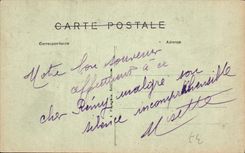 CARTE POSTALE
Correspondance
Adresse
Notre bon souvenir
affectueux à ce
cher Rémy malgré son
silence incompréhensible